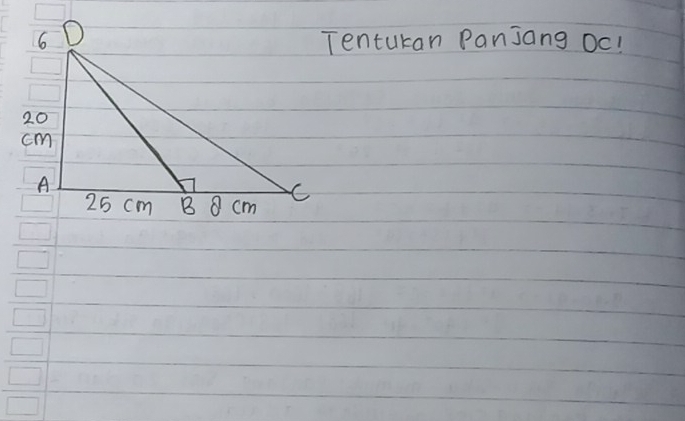 6 D Tentukan Panjang DC!
20
cm
A 25 cm B 8 cm C